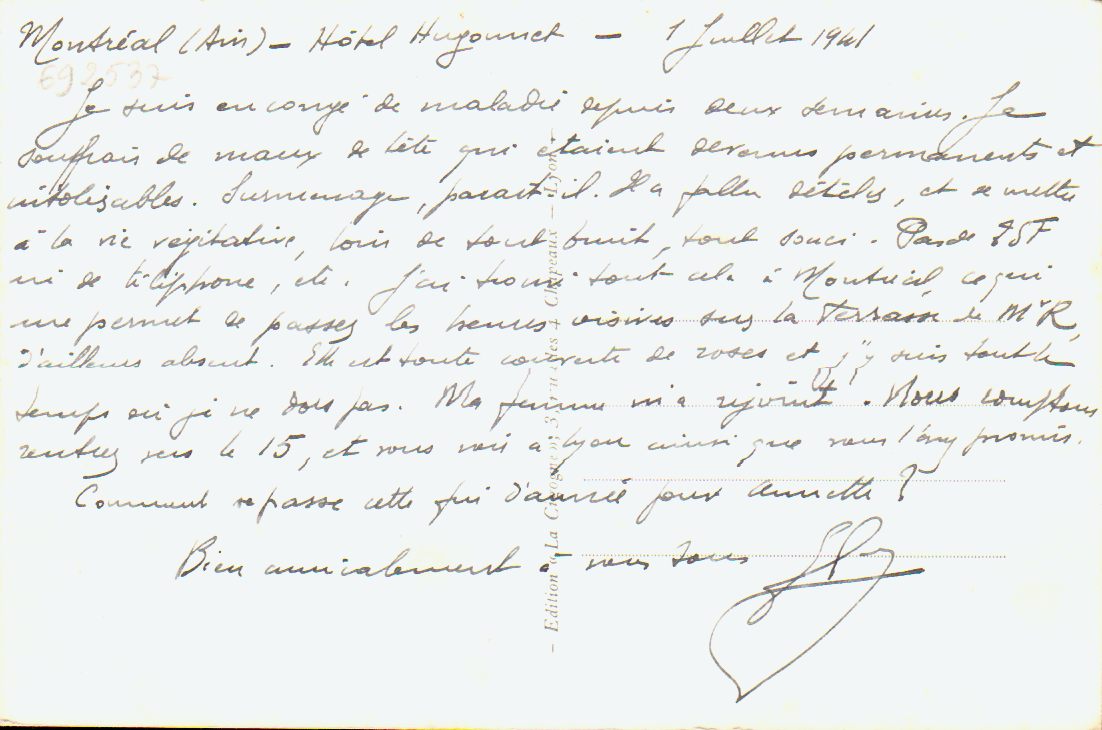 Montréal (Ain) - Hôtel Hugonnet - 1 Juillet 1941
692537
Je suis en congé de maladie depuis deux semaines. Je
souffrais de maux de tête qui étaient devenus permanents et
intolérables. Surmenage, parait-il. Il a fallu dételer, et se mettre
à la vie végétative, loin de tout bruit, tout souci. Pas de TSF
ni de téléphone, etc. J'ai trouvé tout cela à Montréal, ce qui
me permet de passer les heures oisives sur la terrasse de Mr R,
d'ailleurs absent. Elle est toute couverte de roses et j'y suis tout le
temps où je ne dors pas. Ma femme m'a rejoint. Nous comptons
rentrer vers le 15, et vous voir à Lyon ainsi que vous l'avez promis.
Comment se passe cette fin d'année pour Annette ?
Bien amicalement à vous tous
- Edition « La Cigogne », 3, rue des 4 Chapeaux - Lyon -